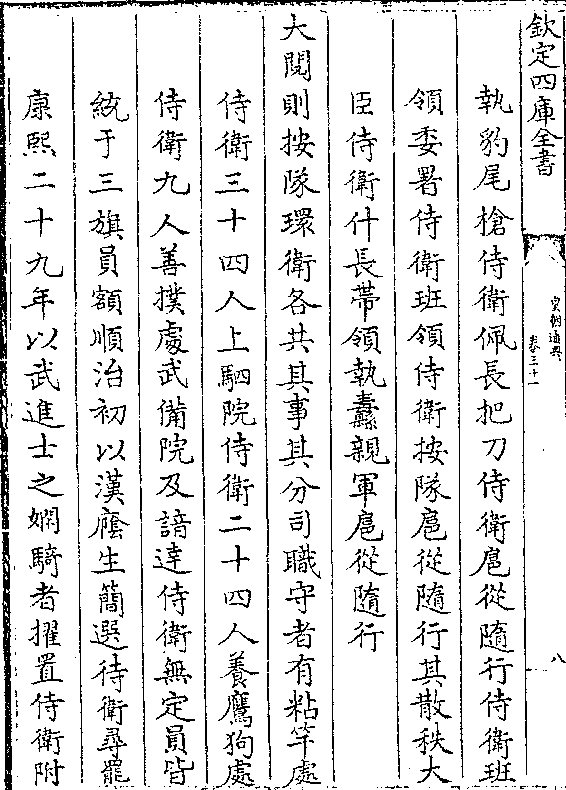 欽定四庫全書
皇朝通典
卷三十一
八
執豹尾槍侍衛佩長把刀侍衛扈從隨行侍衛班
領委署侍衛班領侍衛按隊扈從隨行其散秩大
臣侍衛什長帶領執纛親軍扈從隨行
大閱則按隊環衛各共其事其分司職守者有粘竿處
侍衛三十四人上駟院侍衛二十四人養鷹狗處
侍衛九人善撲處武備院及諳達侍衛無定員皆
統于三旗員額順治初以漢廕生簡選待衛尋罷
康熙二十九年以武進士之嫻騎者擢置侍衛附